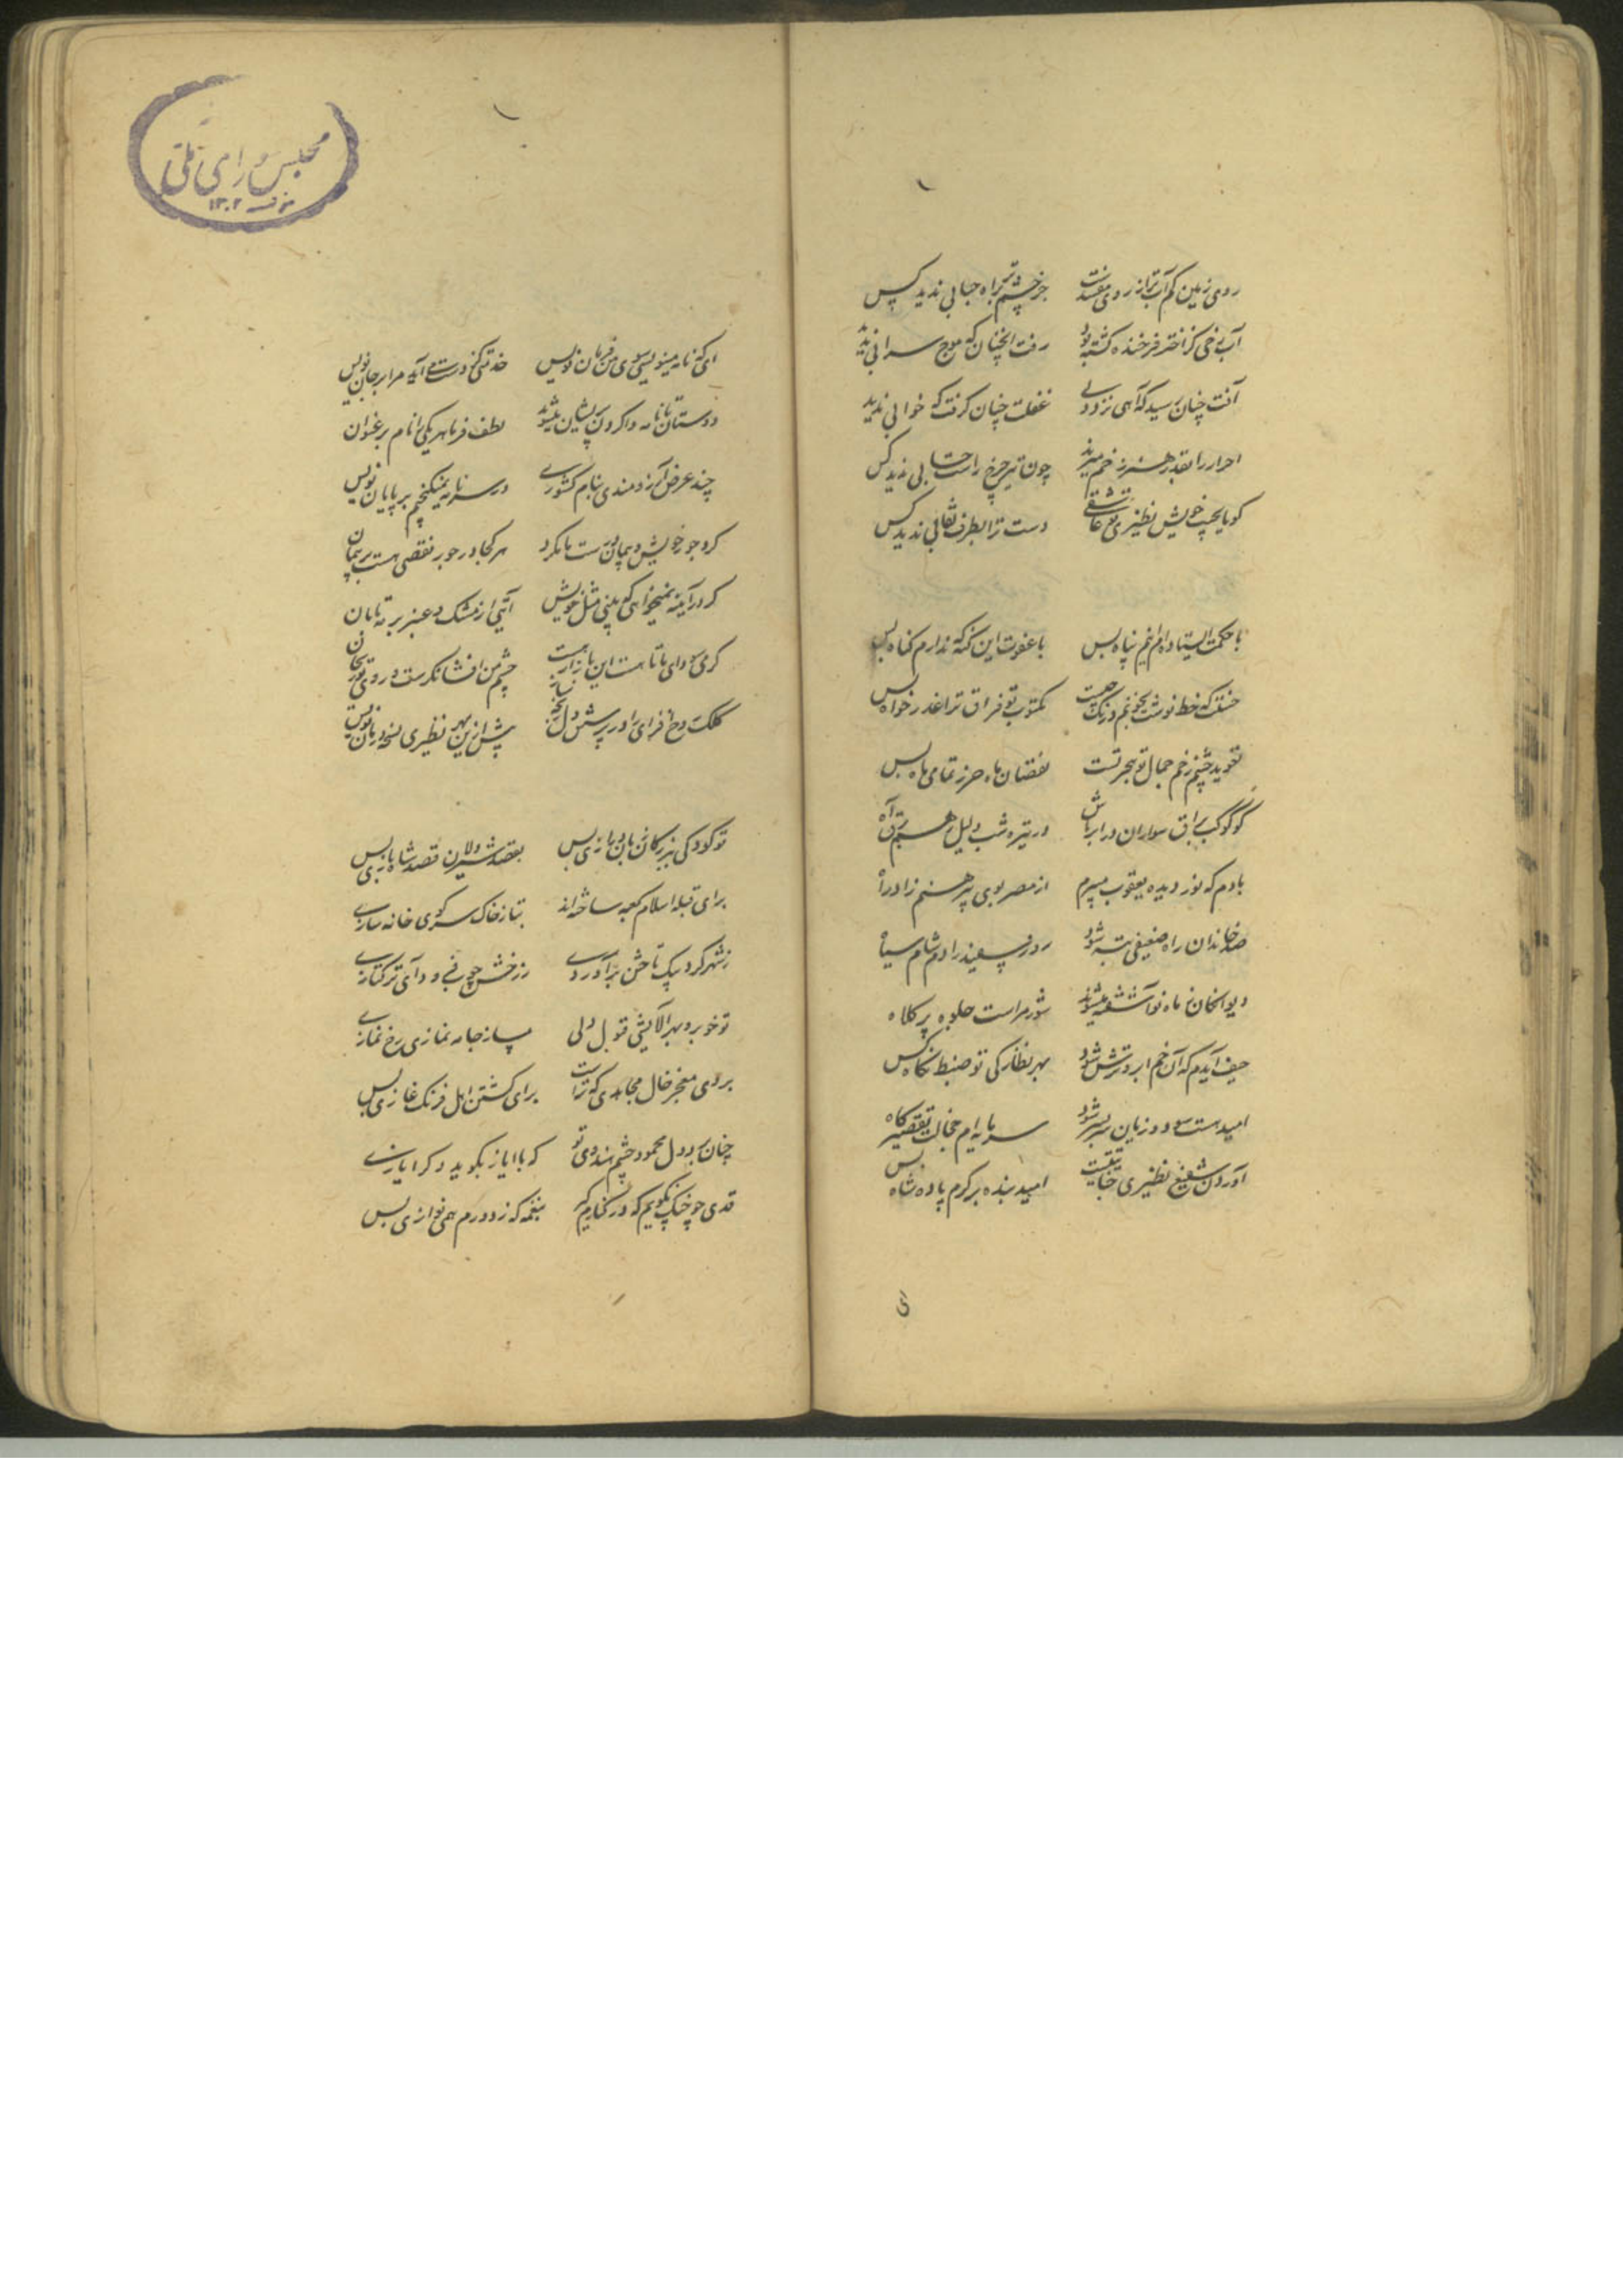 روی زمین کم آب‌تر از روی مفلست جز چشم تر براه حبابی ندید کس
آب رخی کز اختر فرخنده گشته بود رفت آنچنان که موج سرابی ندید
آفت چنان رسید که آهی نزد دلی غفلت چنان گرفت که خوابی ندید
احرار را بقدر هنر زخم میزند چون تیر چرخ راست حسابی ندید کس
گویا بجیب خویش نظیری تو عاشقی دست ترا بطرف نقابی ندید کس
با حکمت ایستاده‌ام اینم پناه بس با عفوت این گنه که ندارم گناه بس
خط نوشت مکتوب تو فراق ترا عذر خواه بس
تعویذ چشم زخم جمال تو هجر تست نقصان ماه حرز تمامی ماه بس
گو کوکب براق سواران در ابر باش در تیره شب دلیل رهم برق آه
بادم که نور دیده یعقوب میبرم از مصر بوی پیرهنم زاد راه
صد خاندان راه ضعیفی تبه شود روز سپید را دم شام سیاه
دیوانگان ز ماه نو آشفته میشوند شور مراست جلوه پر کلاه
حیف آیدم که آن خم ابرو ترش شود بهر نظارگی تو ضبط نگاه بس
امید هست سود و زیان سر بسر شود سرمایه‌ام خجالت تقصیر گاه بس
آوردن شفیع نظیری خباثتیست امید بنده بر کرم پادشاه
ای
مجلس شورای ملی
۱۳۰۲
ای که نامه مینویسی سوی من فرمان نویس خدمتی کز دست می‌آید مرا بر جان نویس
دوستان تا نامه وا کردن پریشان میشوند لطف فرما هر یکی را نام بر عنوان
چند عرض آرزومندی بنام کشوری در سر نامه نمیگنجم بر پایان نویس
کرد جور خویش و پیمان درست ما نکرد هر کجا در جور نقصی هست بر پیمان
گر در آیینه نمیخواهی که بینی مثل خویش آیتی از مشک و عنبر بر مه تابان
گرمی سودای ما تا هست این بازار هست چشم من افشانگرست و روی تو ریحان
کلک روح افزای را در پرسش دل رنجه ساز پیش ازین بهر نظیری نسخه درمان نویس
تو کودکی ببزرگان زبان درازی بس بقصد شیردلان قصد شاهبازی بس
برای قبله اسلام کعبه ساخته‌اند بتا ز خاک سر کوی خانه سازی
ز شهر گرد بیک تاختن برآوردی ز رخش جور فرود آی ترکتازی
تو خوبرو بهر آلایشی قبول دلی مساز جامه نمازی رخ نمازی
بروی خنجر خال مجاهدی که تراست برای کشتن اهل فرنگ غازی بس
چنان ربود دل محمود چشم هندوی تو که با ایاز بگوید دگر ایازی
قدی چو چنگ بگویم که در کنارم گیر بنغمه که ز دورم همی نوازی بس